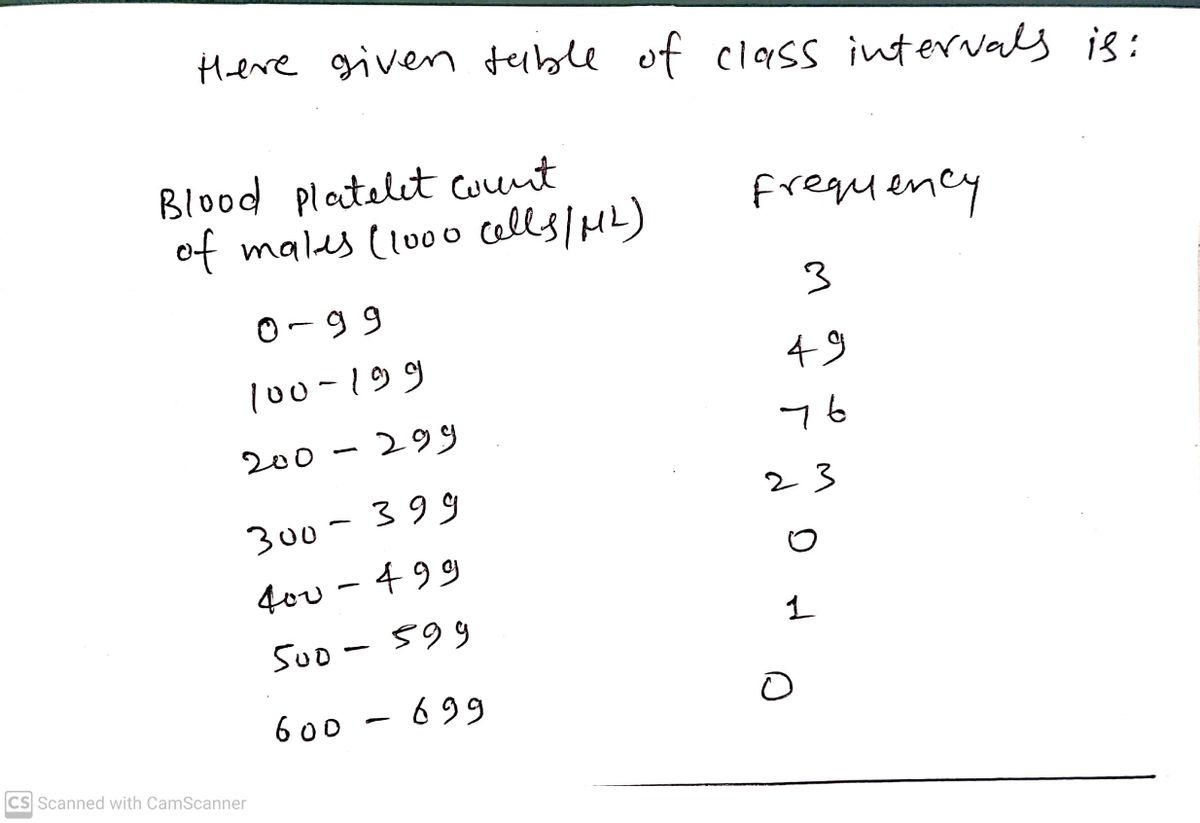 Here given table of class intervals is:
Blood platelet count
of males (1000 cells/μL)
Frequency
0-99 3
100-199 49
200-299 76
300-399 23
400-499 0
500-599 1
600-699 0
CS Scanned with CamScanner